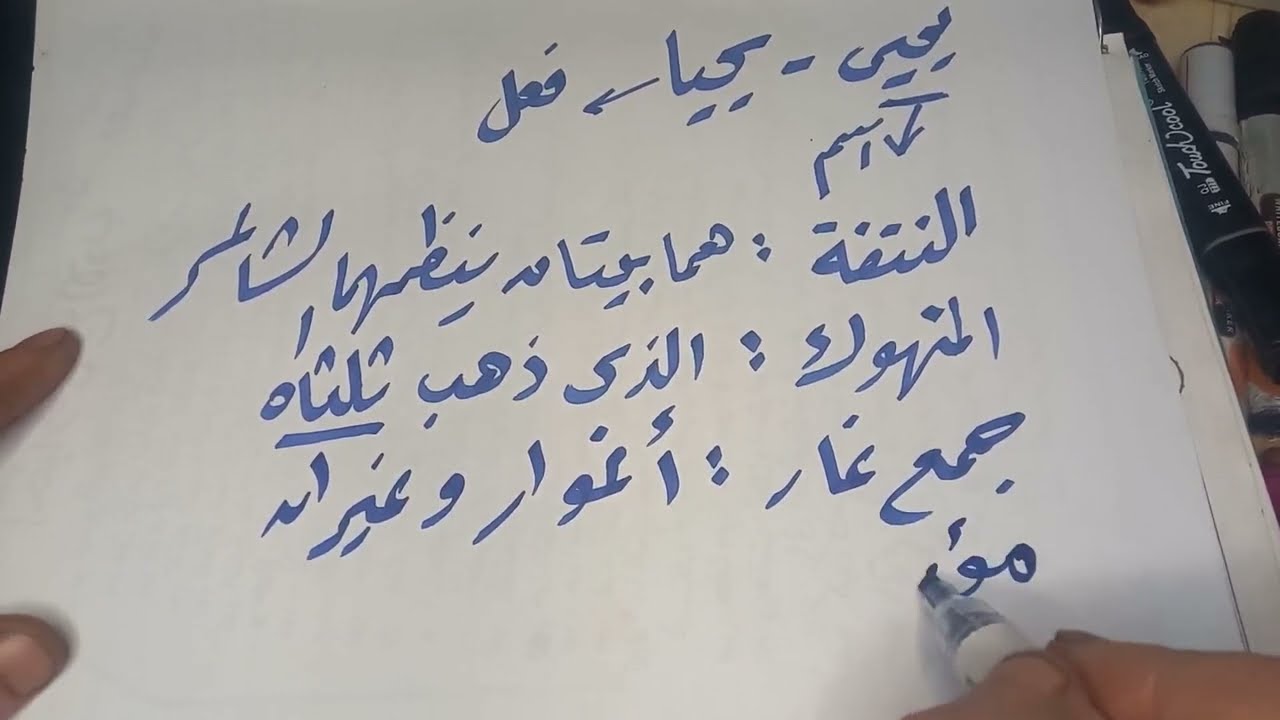 يحيى - يحيا ← فعل
↙ اسم
النتفة : هما بيتان ينظمهما الشاعر
المنهوك : الذى ذهب ثلثاه
جمع غار : أغوار وغيران
مؤ
TouchCool
FINE